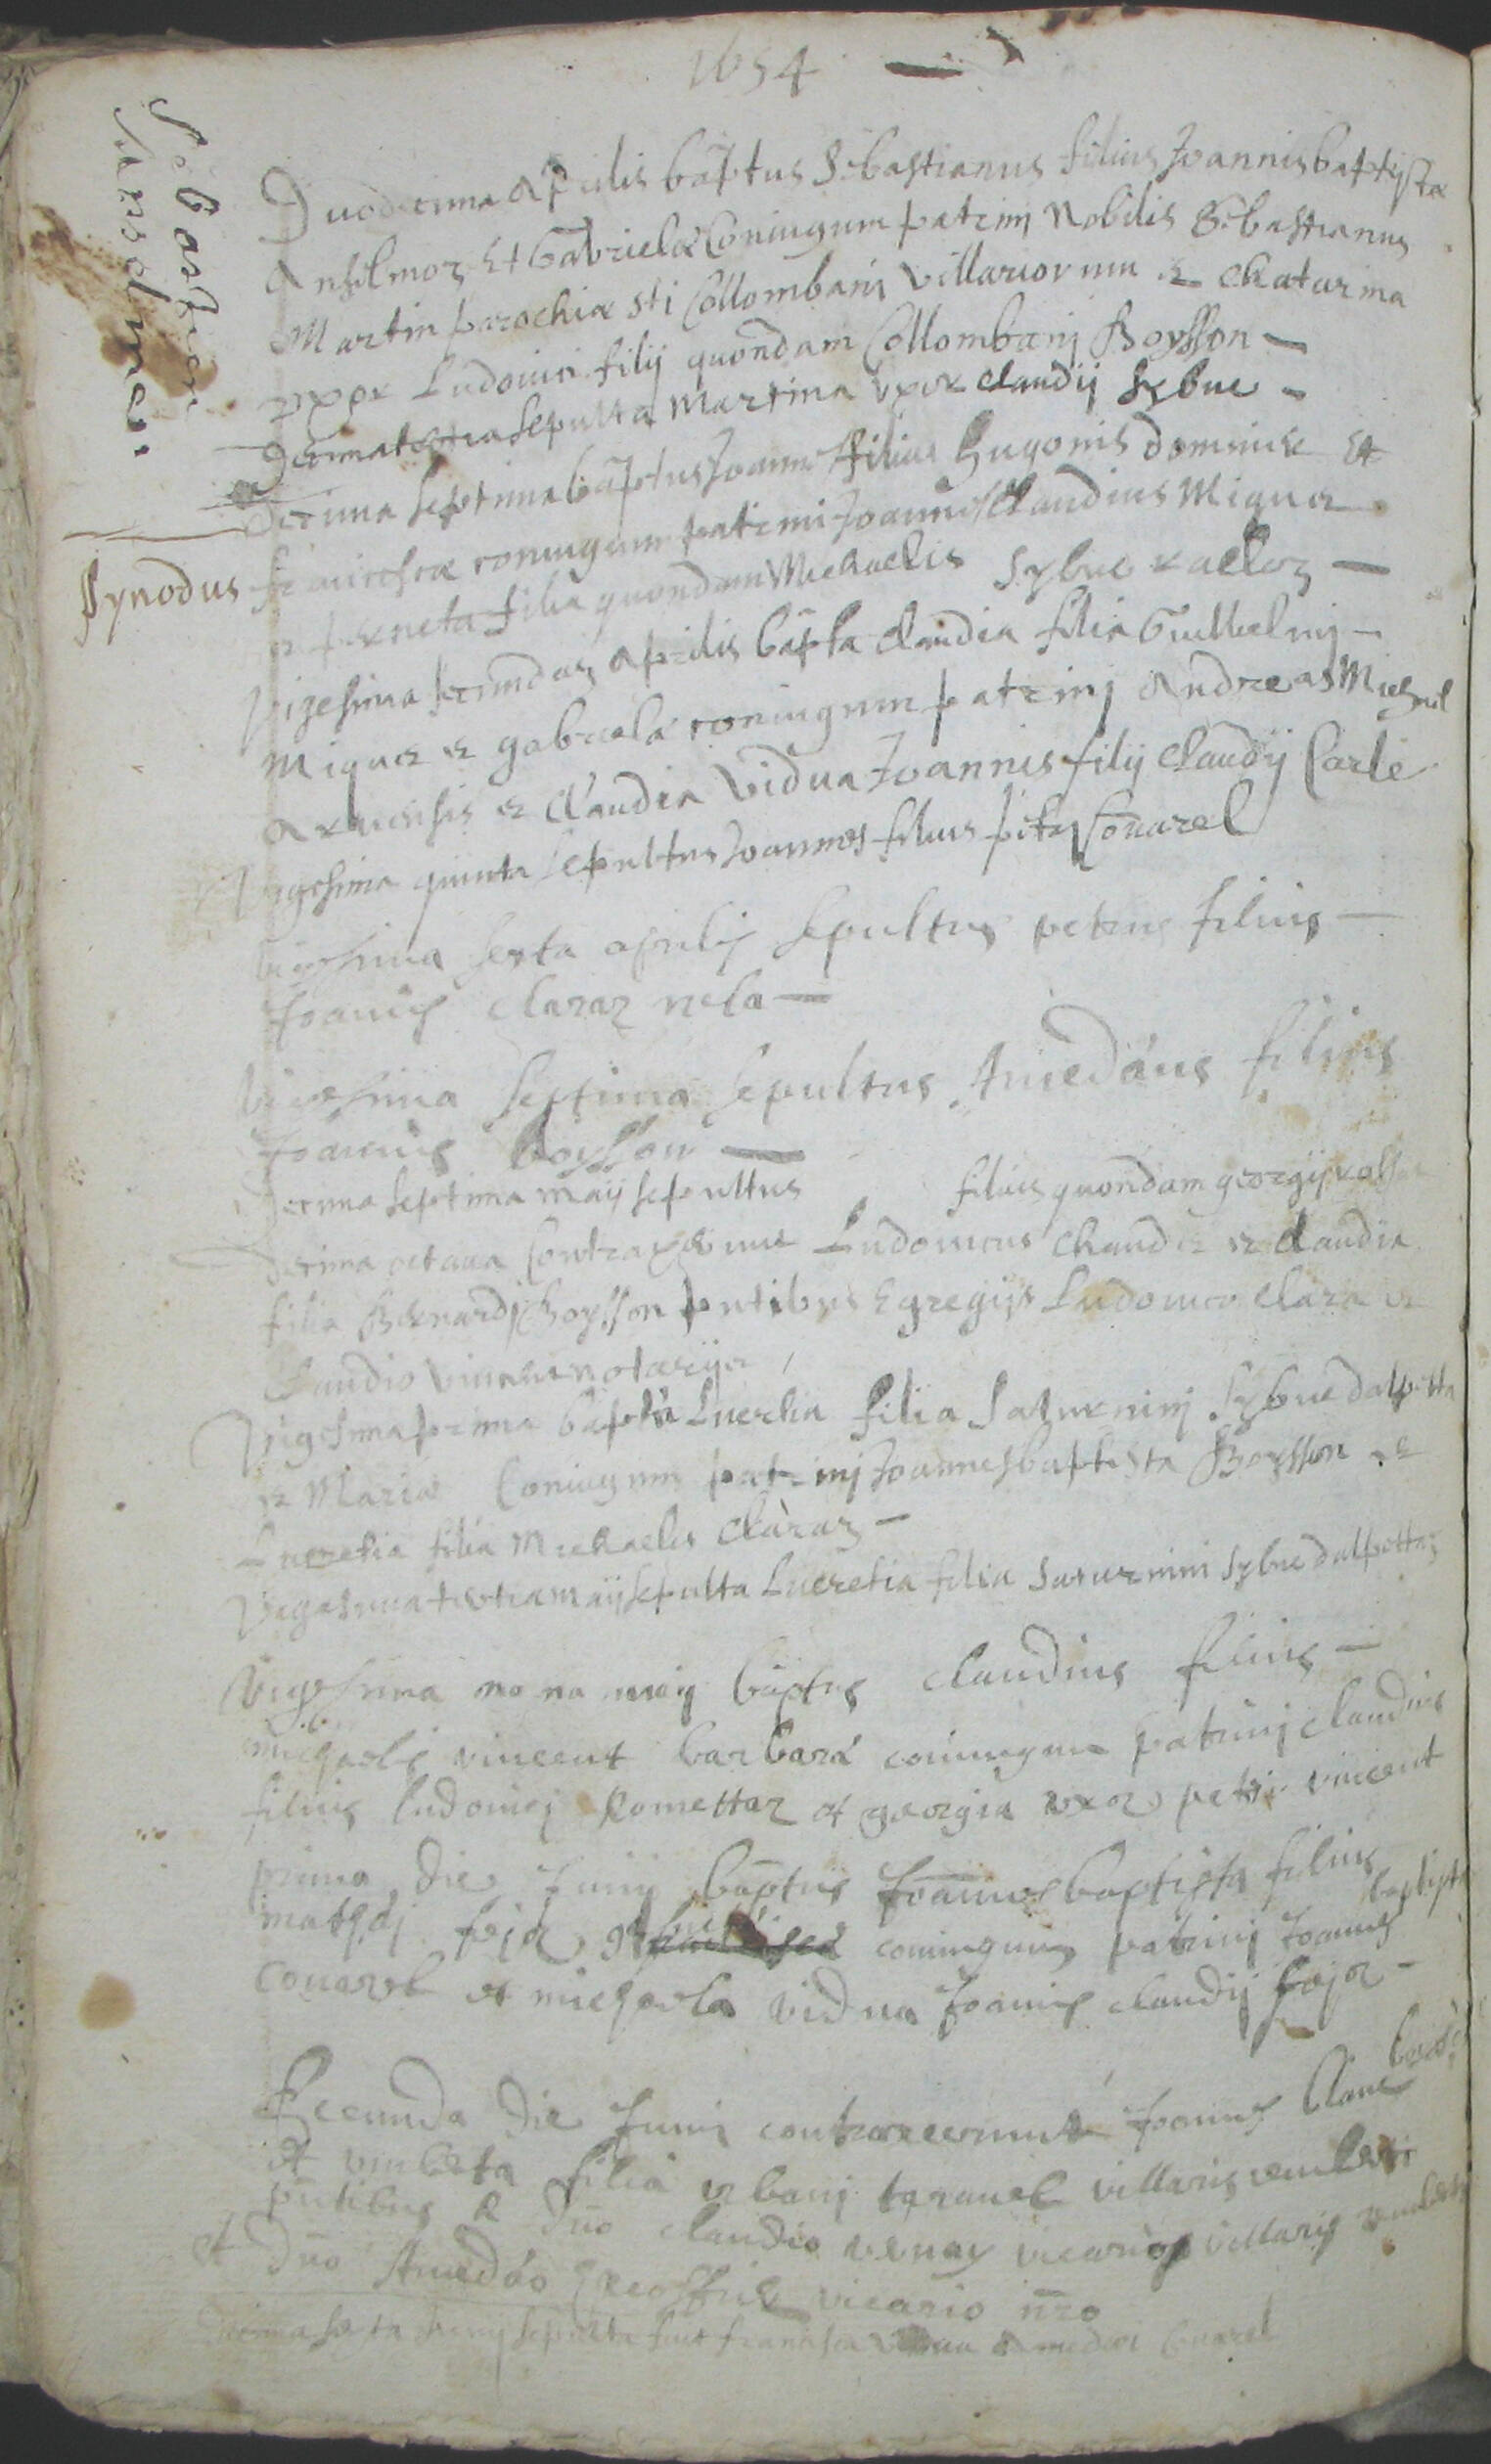 1654
Sebastien
Anselmoz.
Duodecima Aprilis baptus Sebastianus filius Joannisbaptistæ
Anselmoz Et Gabrielæ Coniugum patrinj Nobilis Sebastianus
Martin parochiæ sti Collombani Villariorum et Chatarina
vxor Ludouici filij quondam Collombanj Boysson
Decimatertia sepulta Martina vxor claudij Sybue
Decima septima baptus Joannes filius Hugonis domeniuse Et
Synodus
francescæ coniugum patrini Joannes Claudius Miquet
et perneta filia quondam Michaelis Sybue
Vigesima secunda Aprilis bapta claudia filia Guillielmj
Miquet et gabriela coniugum patrinj Andreas Michael
et Claudia Vidua Joannis filij Claudij Carle
Vigesima quinta sepultus Joannes filius petrj Couarel
Vigesima sexta aprilis sepultus petrus filius
Joannis claraz
Vigesima septima sepultus Amedæus filius
Joannis boysson
Decima septima maij sepultus filius quondam georgij
Decima octaua Contraxerunt Ludouicus et claudia
filia Bernardj Boysson pntibus Egregijs Ludouico Clara et
Claudio notarijs
Vigesima prima bapta Lucretia filia Saturninj Sybue dalpettaz
et Mariæ Coniugum patrinj Joannesbaptista Boysson et
Lucretia filia Michaelis Claraz
Vigesima tertia maij sepulta Lucretia filia Saturnini Sybue dalpettaz
Vigesima nona maij baptus claudius filius
michaelis vincent barbaræ coniugum patrinj claudius
filius ludouicj Comettaz et georgia vxor petri vincent
prima die Junij baptus Joannes baptista filius
mathej et coniugum patrinj Joannes baptista
Couarel et michaela vidua Joannis claudij
Secunda die Junij contraxerunt Joannes
et filia vrbanj villaris
pntibus R dno claudio vicario villaris
et dno Amedæo vicario nro
Decima sexta Junij sepulta fuit francisca Couarel